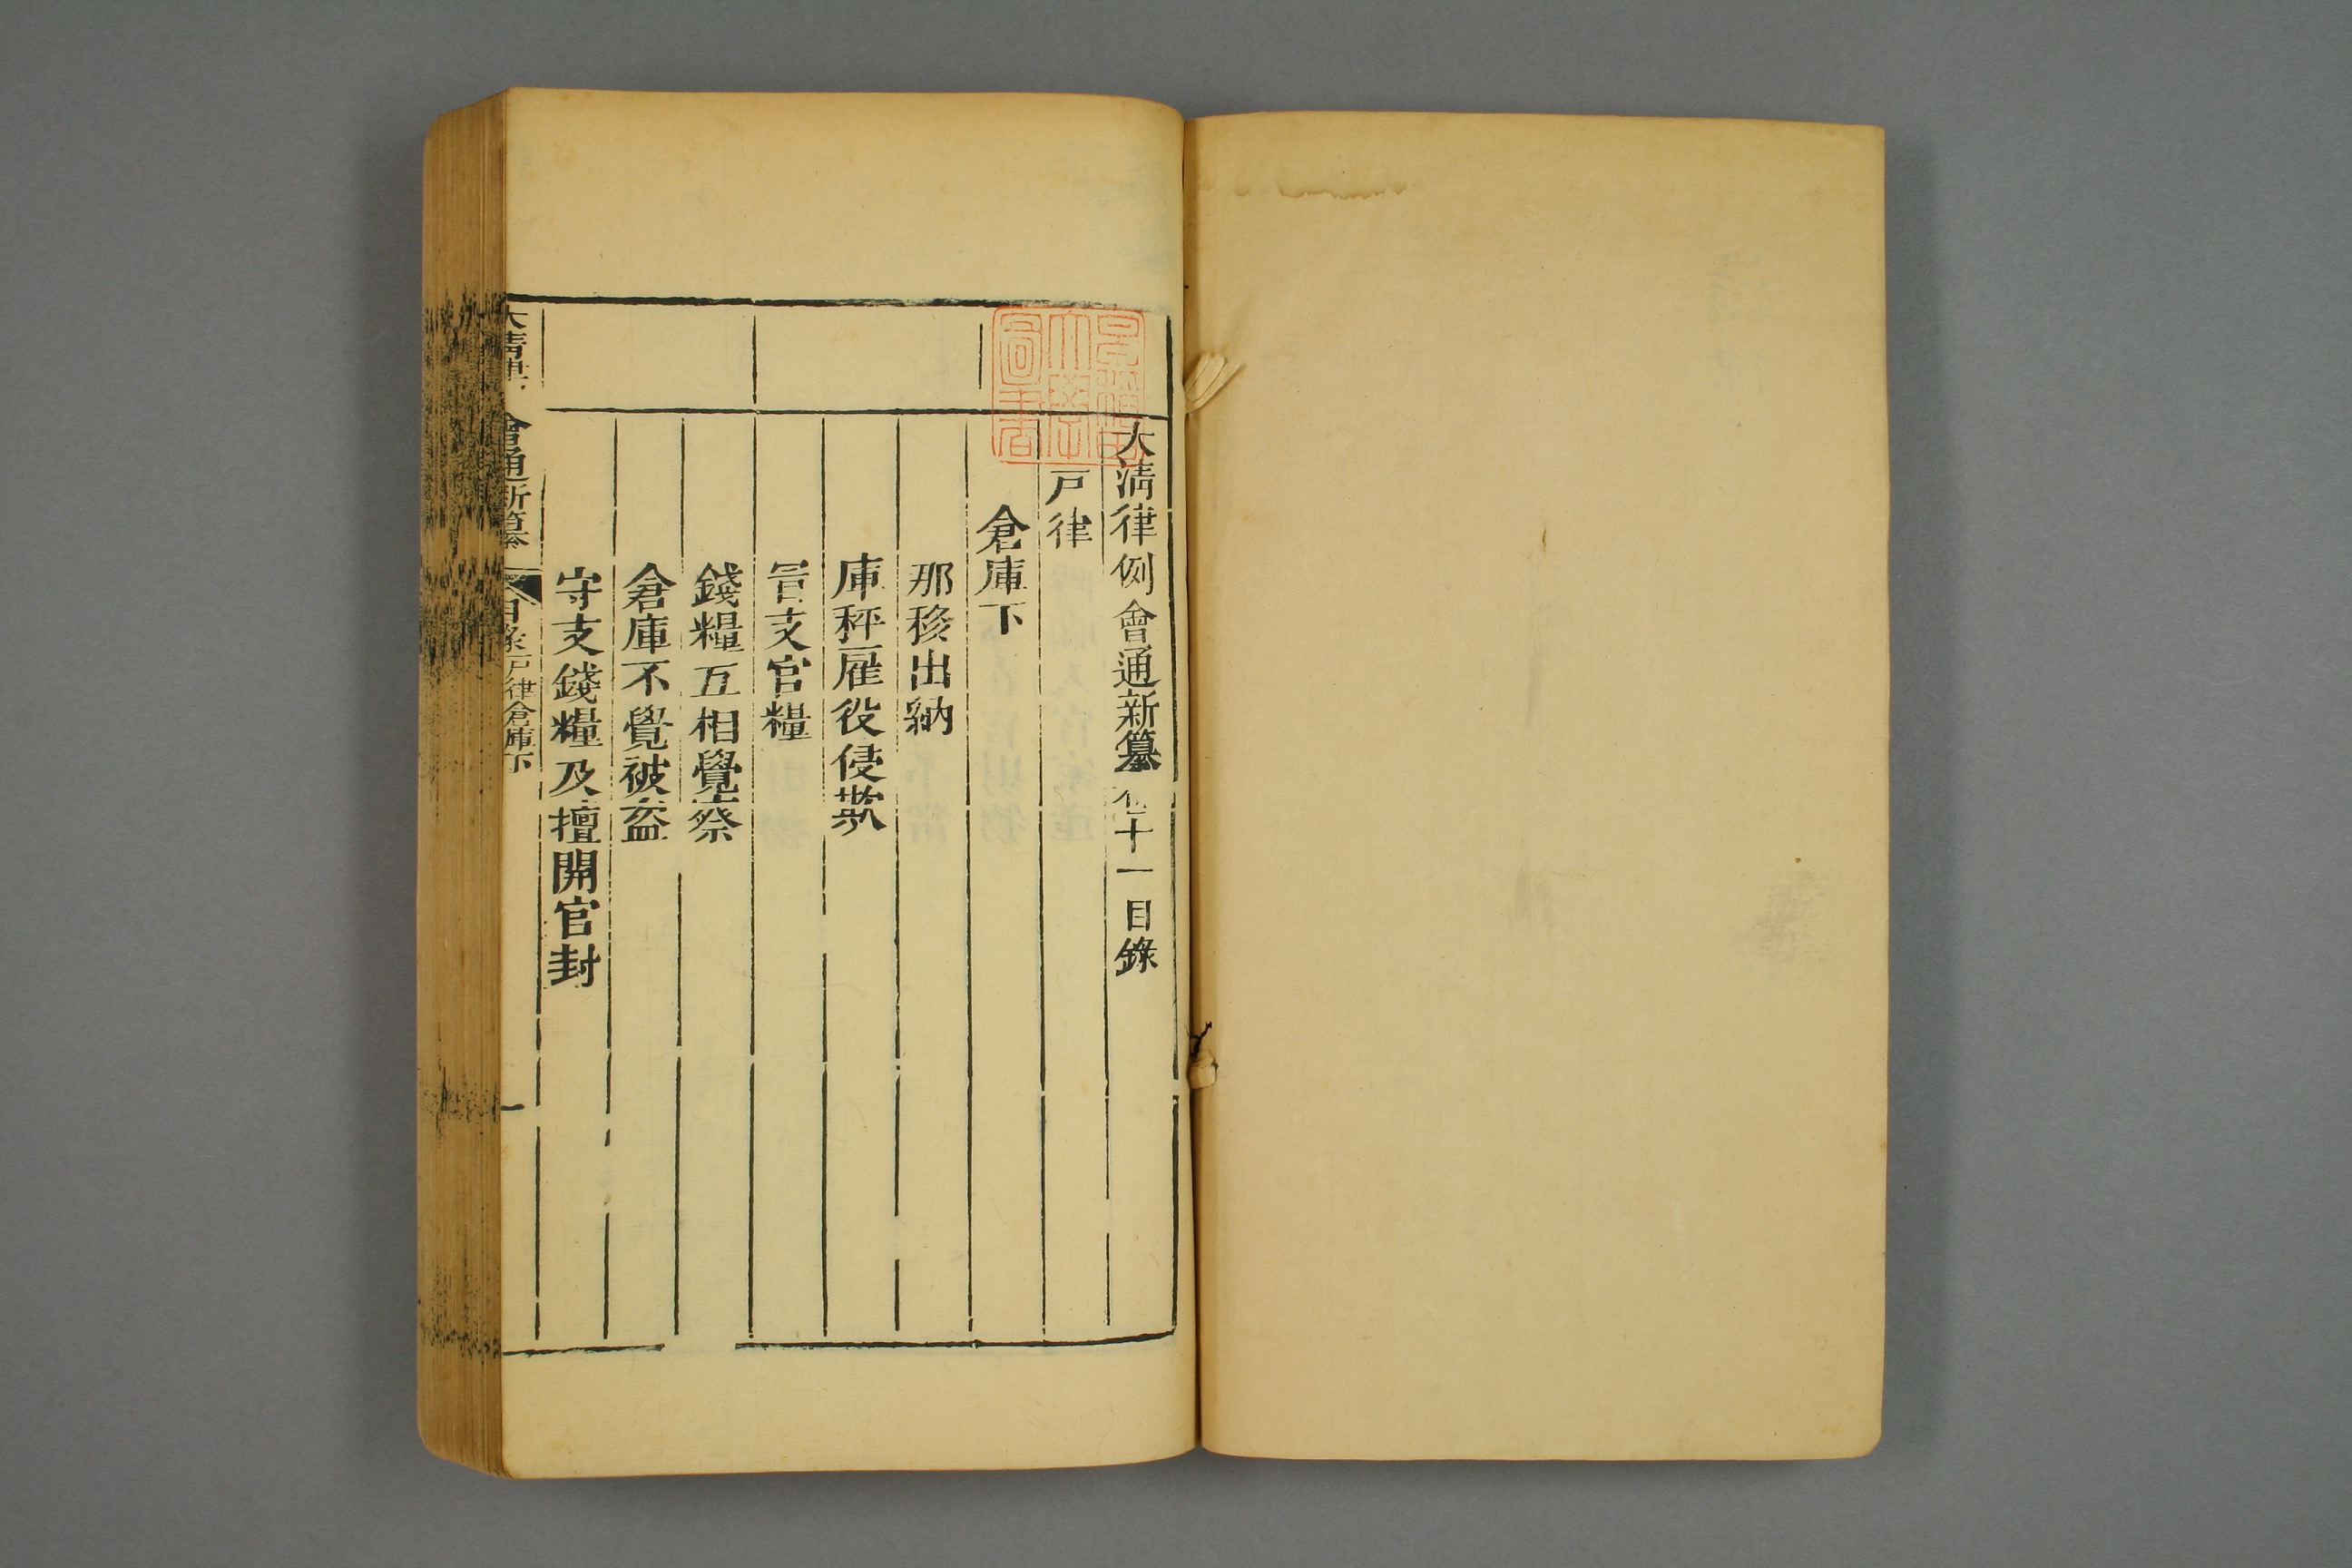 大清律例會通新纂卷十一目錄
戸律
倉庫下
那移出納
庫秤雇役侵欺
冒支官糧
錢糧互相覺察
倉庫不覺被盜
守支錢糧及擅開官封
大清律 會通新纂 目錄戸律倉庫下 一